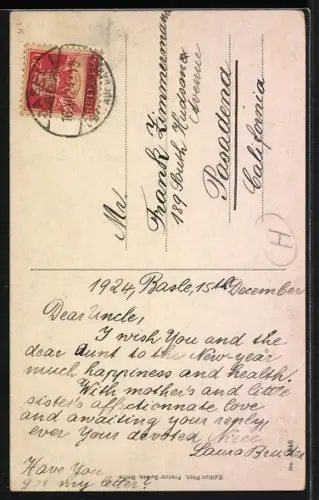 Mr.
Frank Zimmermann
189 South Hudson
Avenue
Pasadena
California
(H)
1924, Basle, 15th December
Dear Uncle,
I wish You and the
dear aunt to the New-year
much happiness and health!
With mother's and little
sister's affectionnate love
and awaiting your reply
ever Your devoted Niece
Laura
Have You
got my letter?
Edition Phot. Franco-Suisse, Berne
HELVETIA